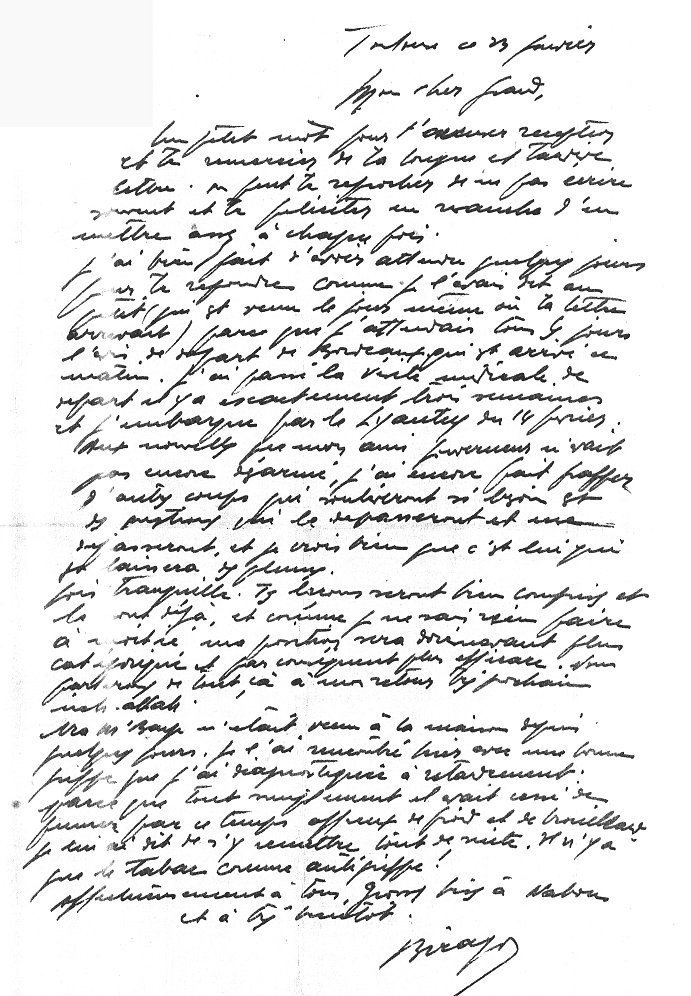 Toulouse ce 23 février
Mon cher Grand,
Un petit mot pour t'accuser réception
et te remercier de ta longue et tardive
lettre. on peut te reprocher de ne pas écrire
souvent et te féliciter en revanche d'en
mettre assez à chaque fois.
J'ai bien fait d'avoir attendu quelques jours
pour te répondre comme je l'avais dit au
petit (qui est venu le jour même où ta lettre
arrivait) parce que j'attendais tous les jours
l'avis de départ de Bordeaux qui est arrivé ce
matin. J'ai passé la visite médicale de
départ il y a exactement trois semaines
et j'embarque par le Lyautey du 14 février.
Aux nouvelles que mon ami gouverneur n'avait
pas encore désarmé, j'ai encore fait frapper
d'autres coups qui soulèveront si besoin est
des questions qui le dépasseront et me
dépasseront, et je crois bien que c'est lui qui
y laissera des plumes.
fois tranquille. Tes leçons seront bien comprises et
le sont déjà, et comme je ne sais rien faire
à moitié, ma position sera dorénavant plus
catégorique et par conséquent plus efficace. Nous
parlerons de tout çà à mon retour très prochain
inch allah.
M'Baye n'était venu à la maison depuis
quelques jours. Je l'ai rencontré hier avec une bonne
grippe que j'ai diagnostiquée à retardement.
parce que tout simplement il avait cessé de
fumer par ce temps affreux de froid et de brouillard
je lui ai dit de s'y remettre tout de suite. Il n'y a
que le tabac comme antigrippe!
Affectueusement à tous, Grosses bises à
et à très bientôt.
Birago